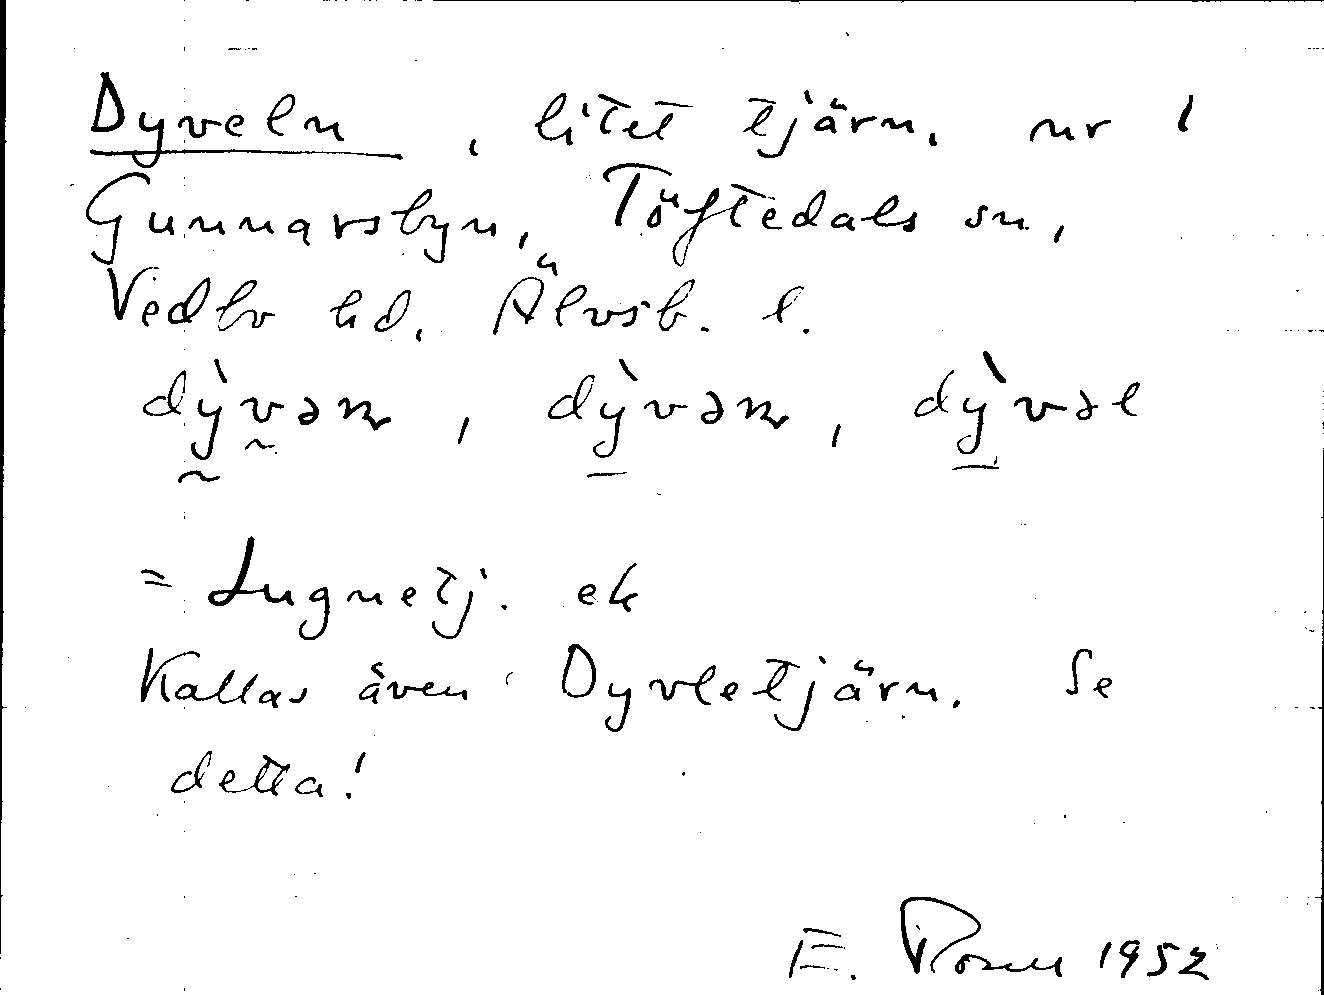 Dyveln, litet tjärn, nr 1
Gunnarsbyn, Töftedals sn,
Vedbo hd, Älvsb. l.
dỳvəɴ, dỳvəɴ, dỳvəl
= Lugnetj. ek
Kallas även Dyvletjärn. Se
detta!
E. Rosell 1952